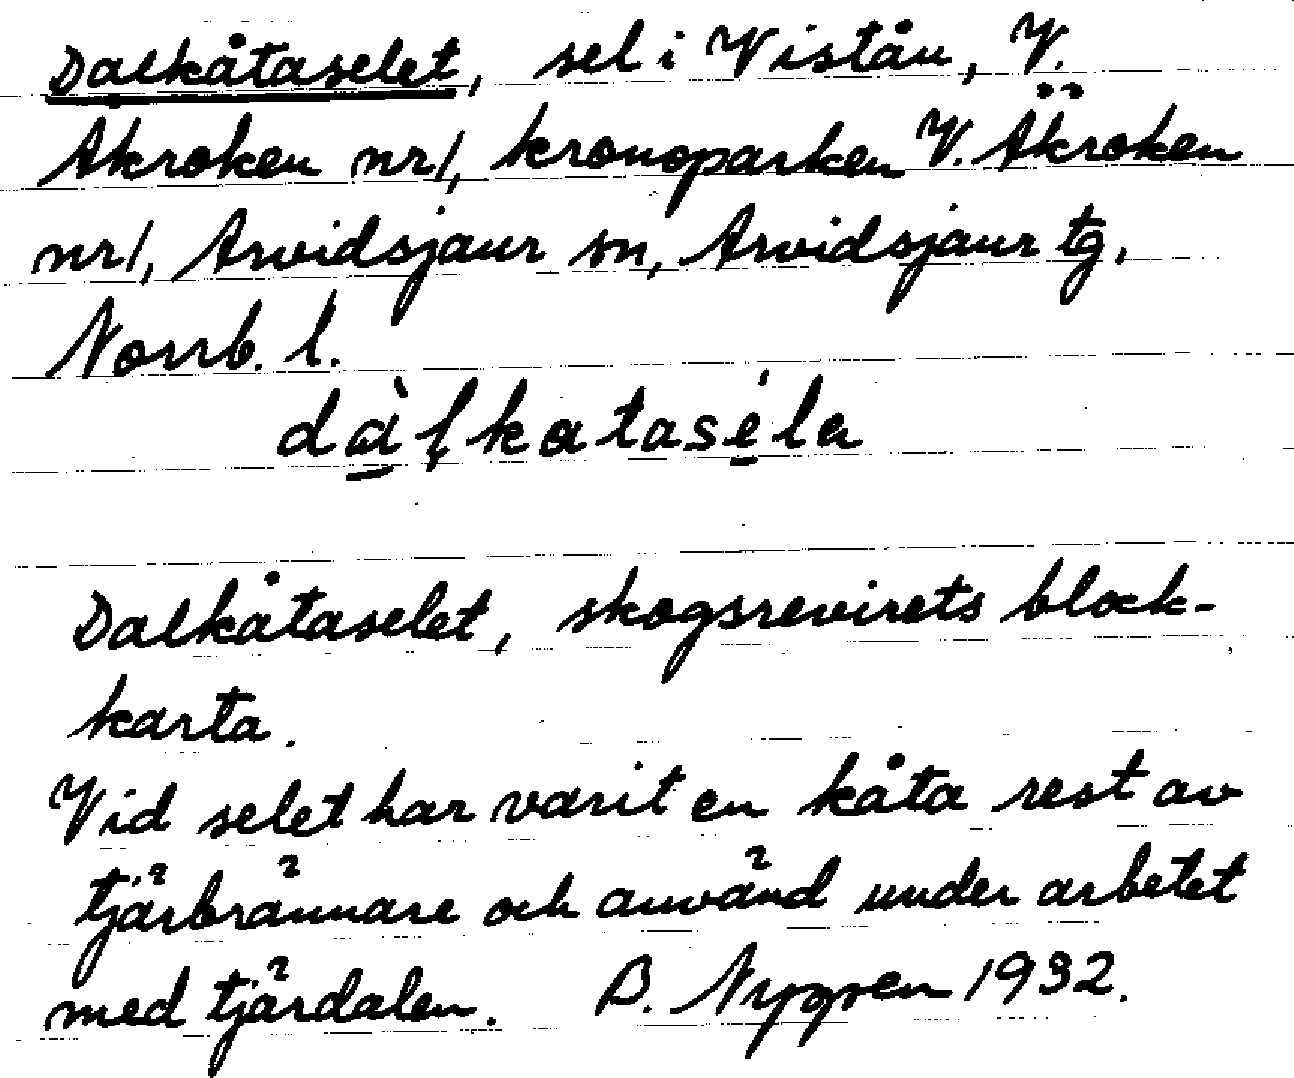 Dalkåtaselet, sel i Viståu, V.
Åkroken nr 1, kronoparken V. Åkroken
nr 1, Arvidsjaur sn, Arvidsjaur tg,
Norrb. l.
dàlkataséla
Dalkåtaselet, skogsrevirets block-
karta.
Vid selet har varit en kåta rest av
tjärbrännare och använd under arbetet
med tjärdalen. B. Nygren 1932.